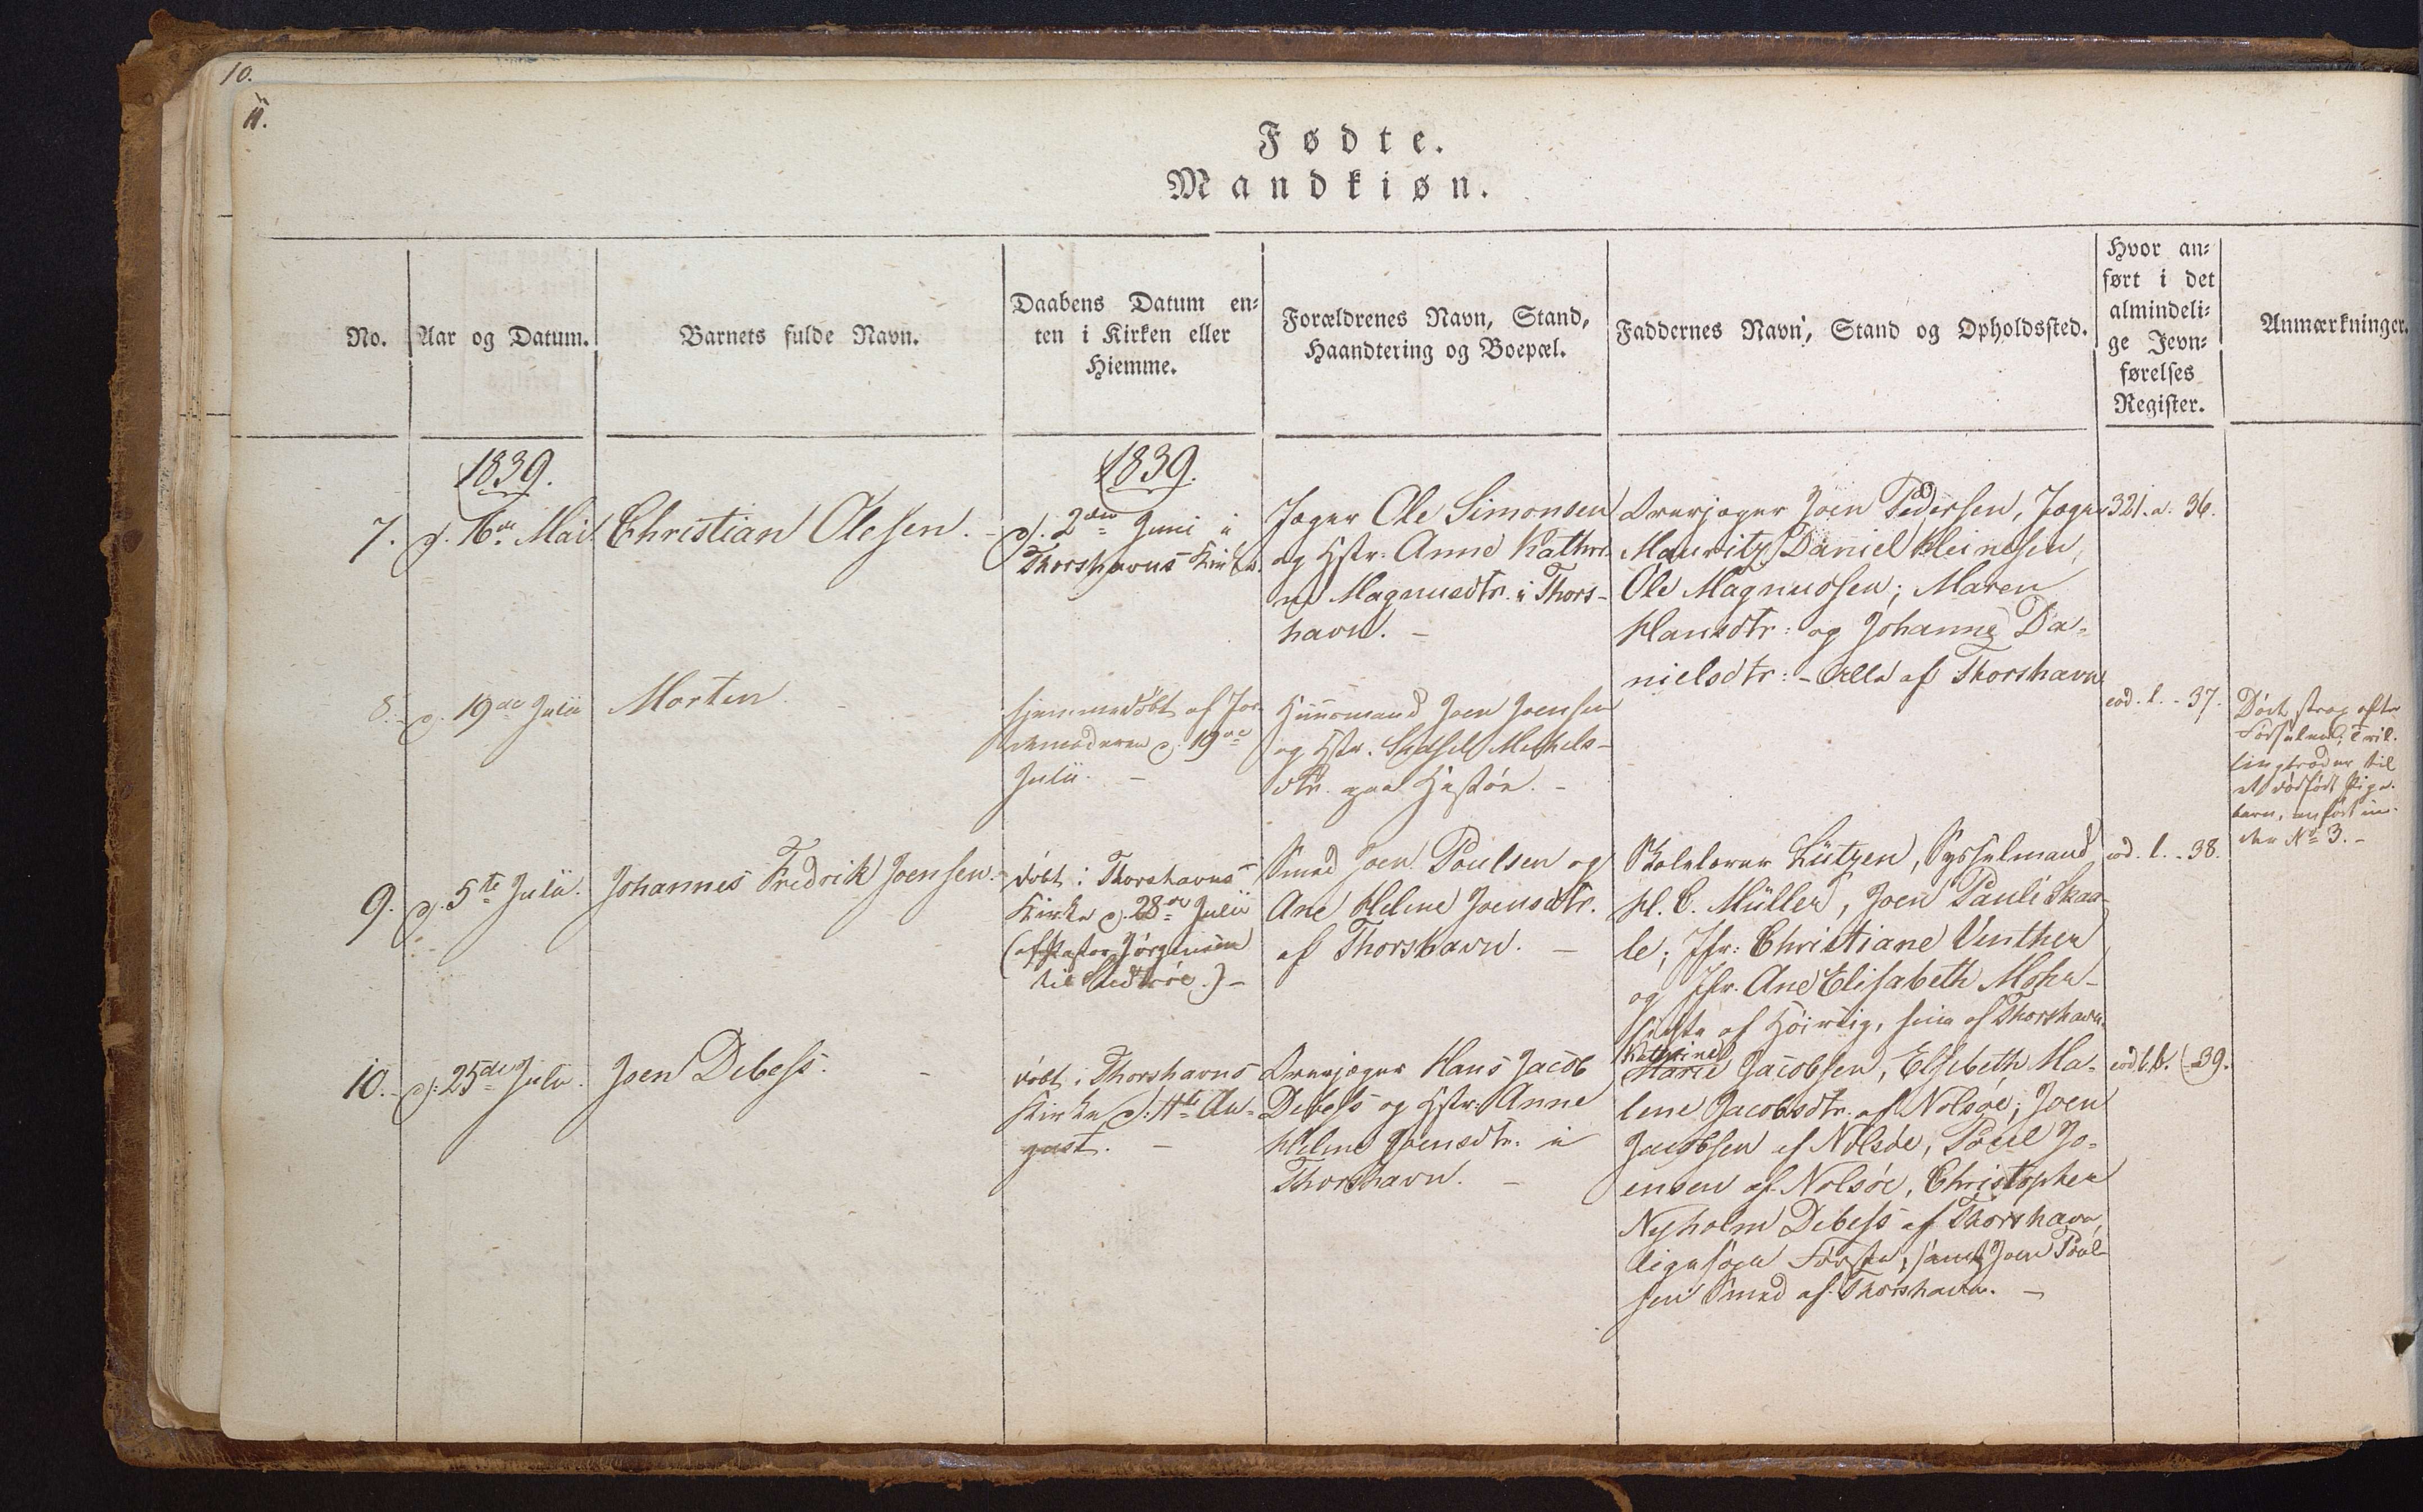 10.
11.
Fødte.
Mandkiøn.
No.
Aar og Datum.
Barnets fulde Navn.
Daabens Datum en-
ten i Kirken eller
Hiemme.
Forældrenes Navn, Stand,
Haandtering og Boepæl.
Faddernes Navn, Stand og Opholdssted.
Hvor an-
ført i det
almindeli-
ge Jevn-
førelses
Register.
Anmærkninger.
1839.
1839.
7.
d. 16de Mai.
Christian Olesen.
d. 2den Juni i
Thorshavns Kirke.
Jæger Ole Simonsen
og Hstr. Anne Kathri-
ne Magnusdtr. i Thors-
havn. -
Overjæger Joen Pedersen, Jæger
Mauritz Daniel Heinesen,
Ole Magnussen; Maren
Hansdtr: og Johanne Da-
nielsdtr: - Alle af Thorshavn
321. a. 36.
8.
d. 19de Julii
Morten
hjemmedøbt af Jor-
demoderen d. 19de
Julii. -
Huusmand Joen Joensen
og Hstr. Sidsel Michels-
dtr. paa Hestøe. -
eod. l. - 37.
Død strax efter
Fødselen; Tvil-
lingbroder til
et dødfødt Pige-
barn, anført un-
der No 3. -
9.
d. 5te Julii.
Johannes Fredrik Joensen.
døbt i Thorshavns
Kirke d. 28de Julii
(af Pastor Jørgensen
til .) -
Smed Joen Poulsen og
Ane Helene Joensdtr.
af Thorshavn. -
Skolelærer Lützen, Sysselmand
H. C. Müller, Joen Pauli Skaa-
le; Jfr: Christiane Winther
og Jfr. Ane Elisabeth Mohr -
sidste af Hoirvig, hine af Thorshavn.
eod. l. - 38.
10.
d. 25de Julii.
Joen Debess.
døbt i Thorshavns
Kirke d. 11te Au-
gust. -
Overjæger Hans Jacob
Debess og Hstr. Anne
Helene Joensdtr. i
Thorshavn. -
Kathrine
Marie Jacobsen, Elsebeth Ma-
lene Jacobsdtr. af Nolsöe; Joen
Jacobsen af Nolsöe, Poul Jo-
ensen af Nolsöe, Christopher
Nyholm Debess af Thorshavn,
ligesom Første, samt Joen Poul-
sen Smed af Thorshavn. -
eod. l. - 39.